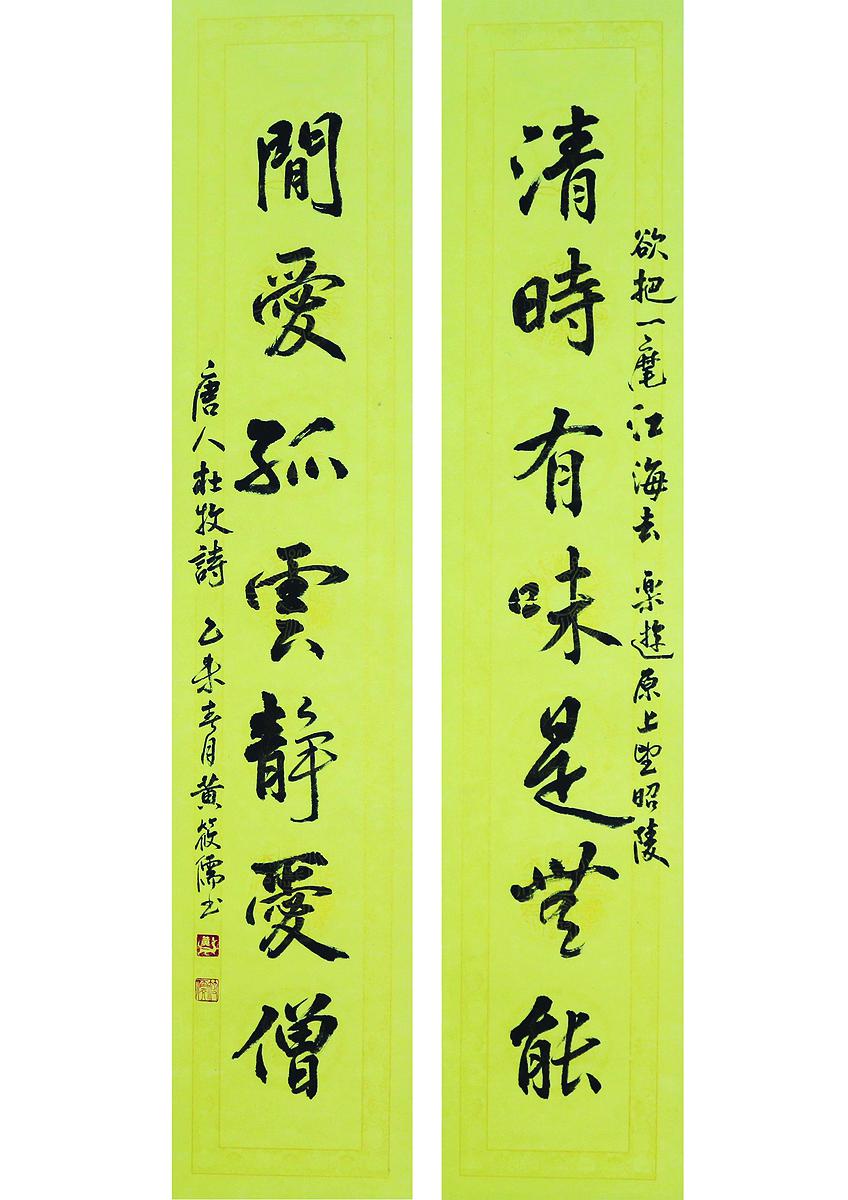 清時有味是無能
欲把一麾江海去 樂遊原上望昭陵
閒愛孤雲靜愛僧
唐人杜牧詩 乙未春月黄筱儒书